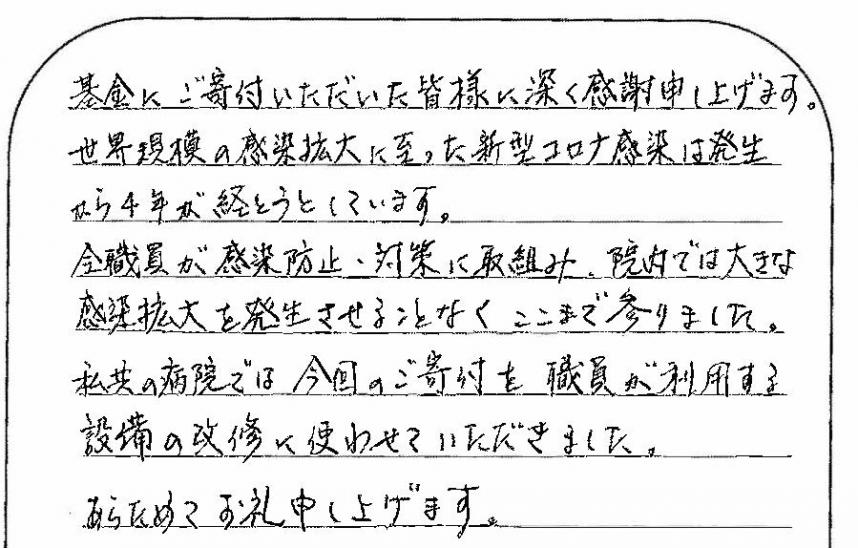 基金にご寄付いただいた皆様に深く感謝申し上げます。
世界規模の感染拡大に至った新型コロナ感染は発生
から4年が経とうとしています。
全職員が感染防止・対策に取組み、院内では大きな
感染拡大を発生させることなくここまで参りました。
私共の病院では今回のご寄付を職員が利用する
設備の改修に使わせていただきました。
あらためてお礼申し上げます。